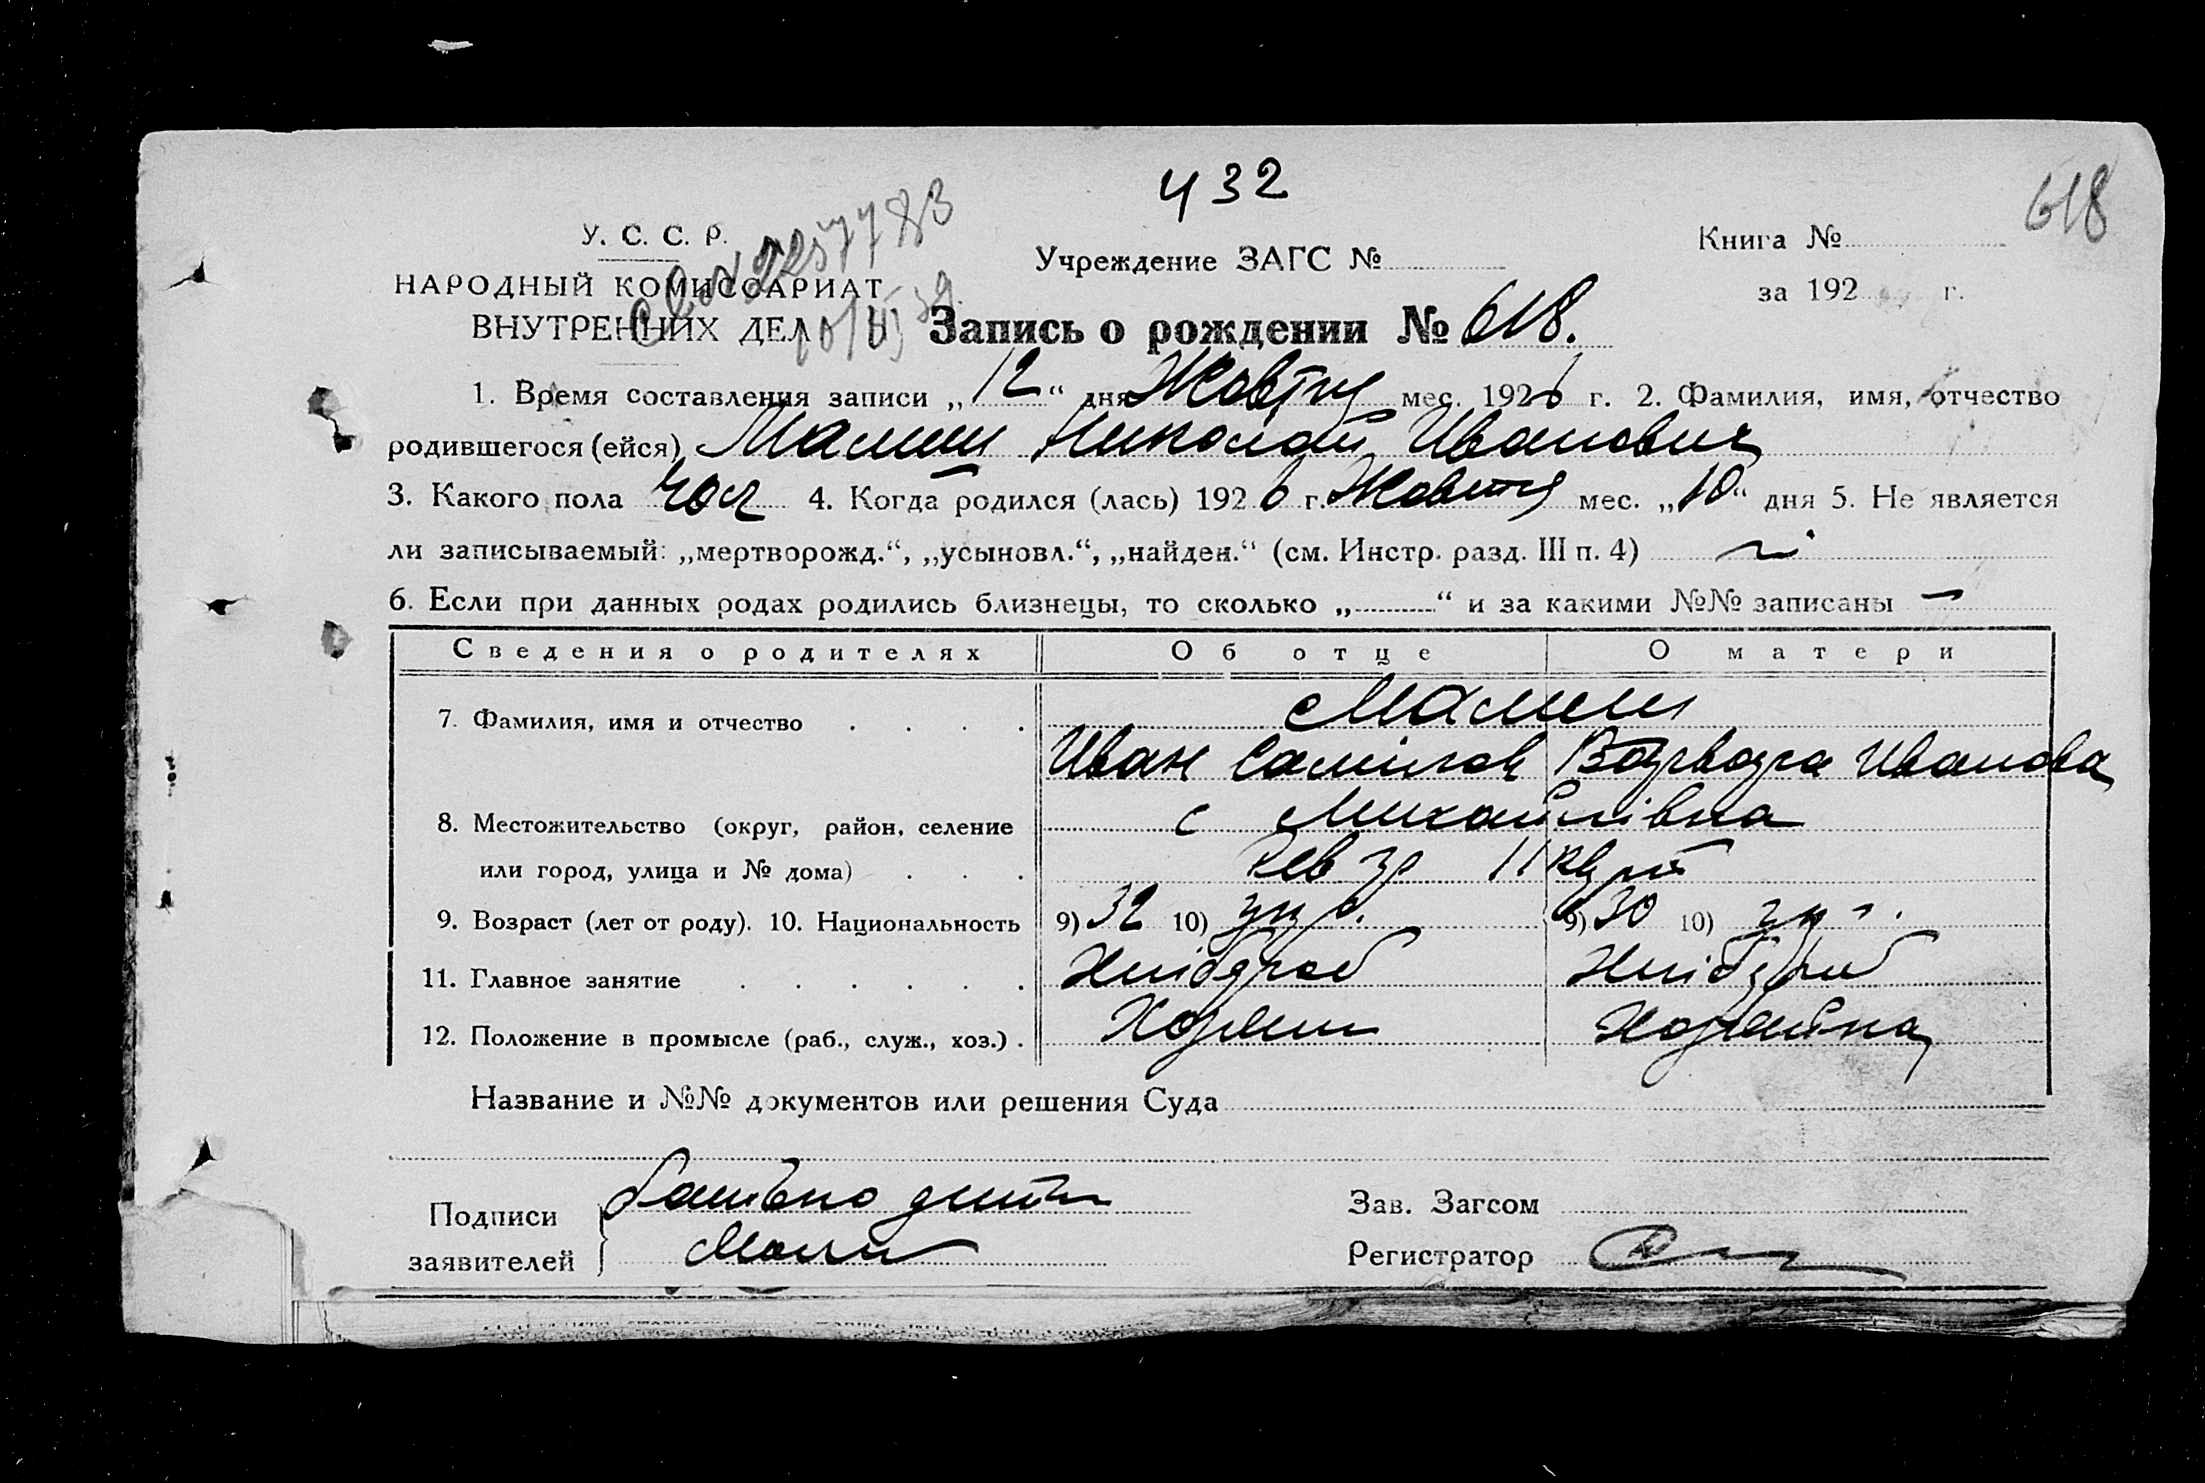 432
618
У. С. С. Р.
НАРОДНЫЙ КОМИССАРИАТ
ВНУТРЕННИХ ДЕЛ
Учреждение ЗАГС №
Книга №
за 192 г.
Запись о рождении № 618.
1. Время составления записи „12“ дня Жовтня мес. 1926 г. 2. Фамилия, имя, отчество
родившегося (ейся) Малиш Николай Иванович
3. Какого пола чол 4. Когда родился (лась) 1926 г. Жовтня мес. „10“ дня 5. Не является
ли записываемый: „мертворожд.“, „усыновл.“, „найден.“ (см. Инстр. разд. III п. 4)
6. Если при данных родах родились близнецы, то сколько „ “ и за какими №№ записаны —
Сведения о родителях Об отце О матери
7. Фамилия, имя и отчество Малиш
Иван Варвара Иванова
8. Местожительство (округ, район, селение с Михайлівка
или город, улица и № дома) 11
9. Возраст (лет от роду). 10. Национальность 9) 32 10) укр. 9) 30 10) укр.
11. Главное занятие Хлібороб Хлібороб
12. Положение в промысле (раб., служ., хоз.) Хозяин Хозяйка
Название и №№ документов или решения Суда
Подписи
заявителей
Батько дити
Зав. Загсом
Регистратор